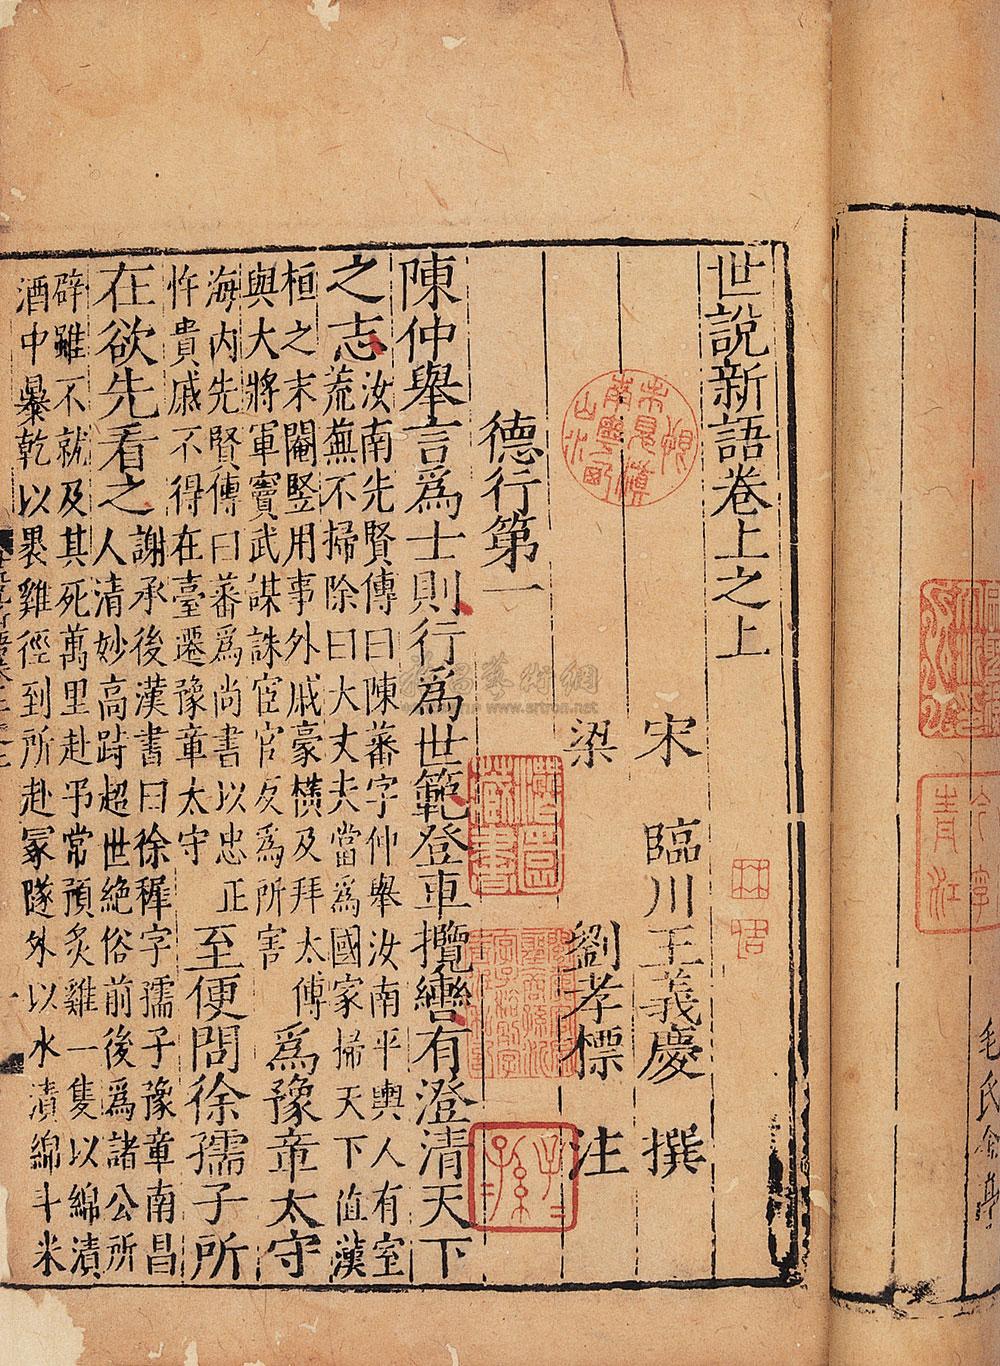 世說新語卷上之上
宋 臨川王義慶 撰
梁 劉孝標 注
德行第一
陳仲舉言爲士則行爲世範登車攬轡有澄清天下
之志
汝南先賢傳曰陳蕃字仲舉汝南平輿人有室
荒蕪不掃除曰大丈夫當爲國家掃天下值漢
桓之末閹豎用事外戚豪橫及拜太傅
與大將軍竇武謀誅宦官反爲所害
爲豫章太守
海內先賢傳曰蕃爲尚書以忠正
忤貴戚不得在臺遷豫章太守
至便問徐孺子所
在欲先看之
謝承後漢書曰徐穉字孺子豫章南昌
人清妙高跱超世絶俗前後爲諸公所
辟雖不就及其死萬里赴弔常預炙雞一隻以綿漬
酒中暴乾以裹雞徑到所赴冢隧外以水漬綿斗米
毛氏
www.artron.net